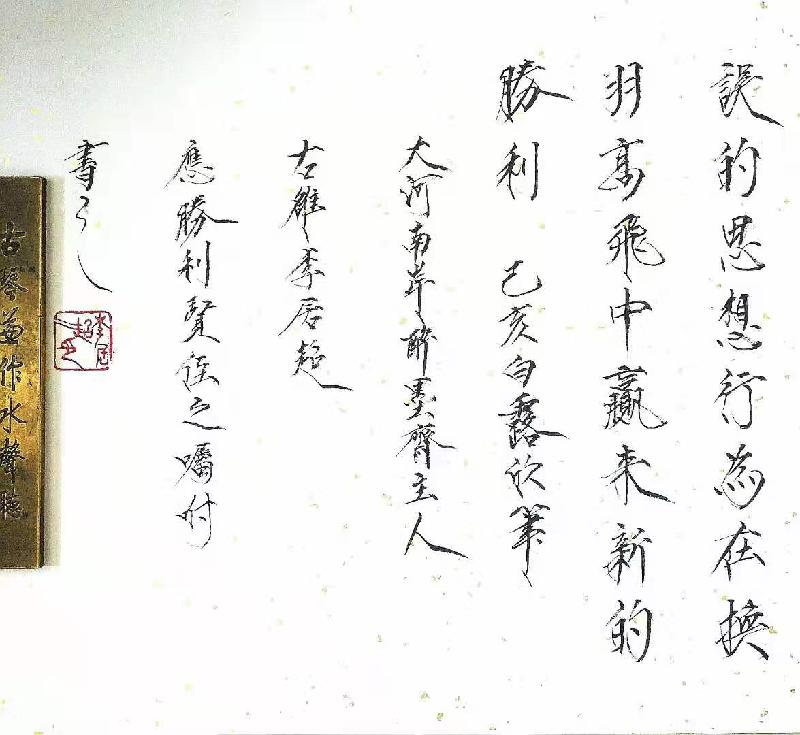 誤的思想行為在換
羽高飛中贏来新的
勝利 己亥白露欣筆
大河南岸醉墨齋主人
古雒李居超
應勝利賢侄之囑付
書之
李居超之
古琴兼作水聲聽